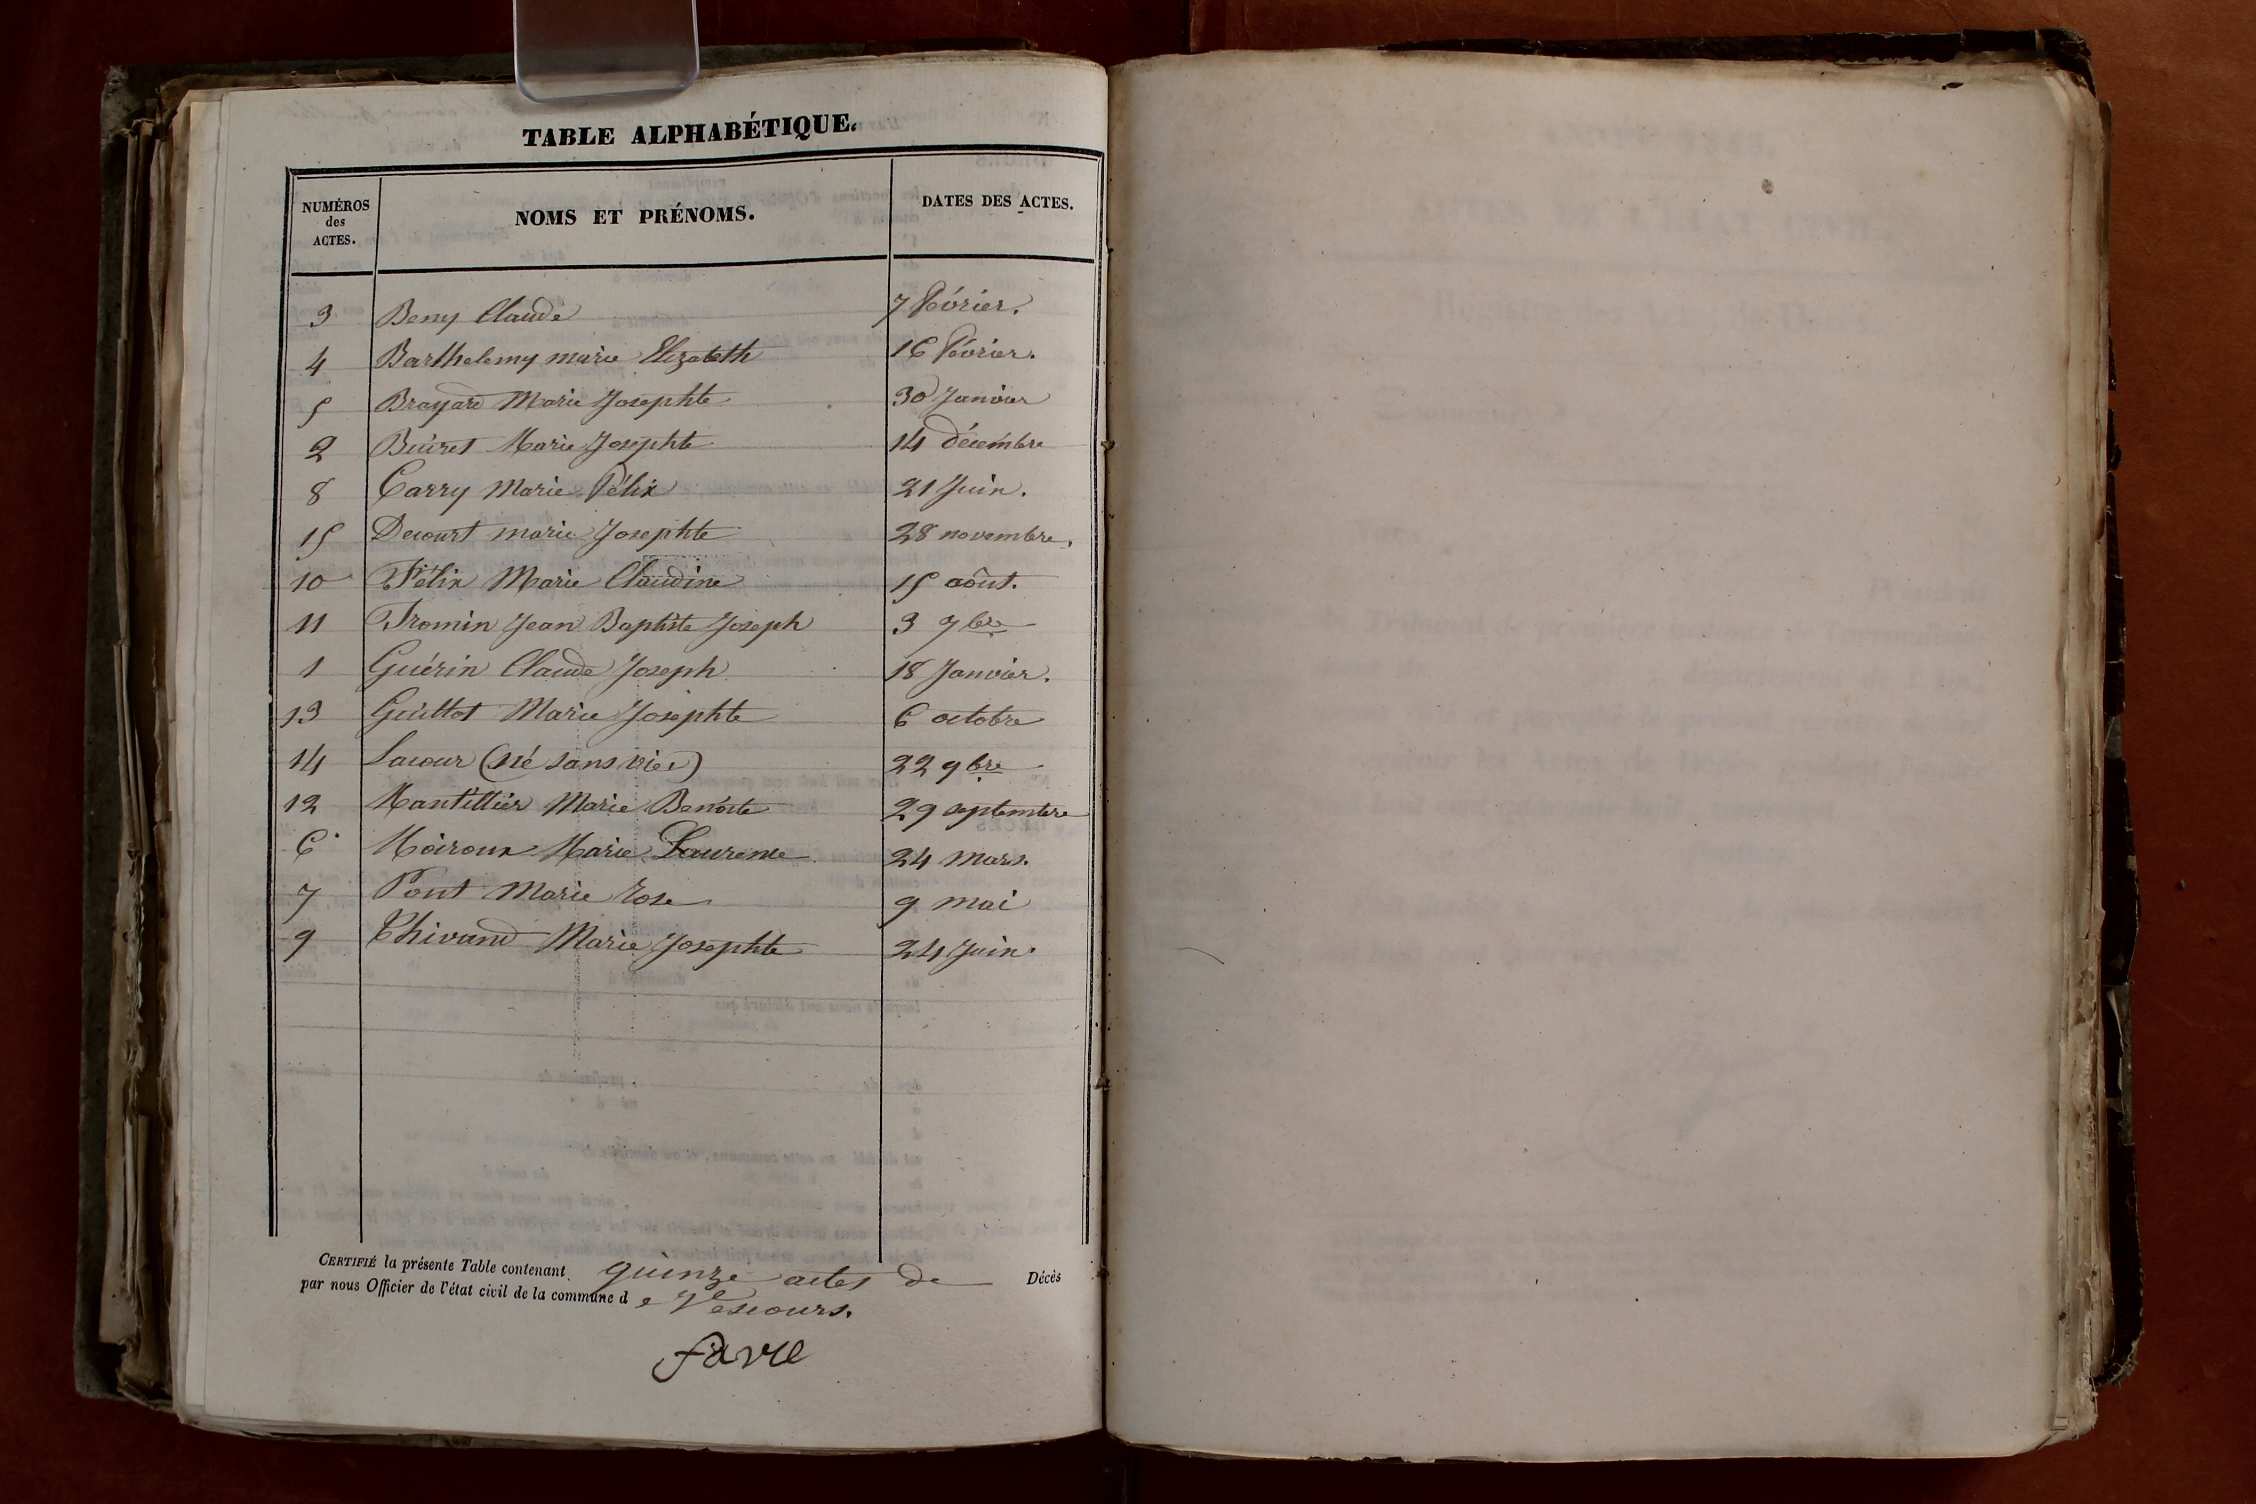 TABLE ALPHABÉTIQUE.
NUMÉROS des ACTES. NOMS ET PRÉNOMS. DATES DES ACTES.
3 Beny Claude 7 février.
4 Barthelemy marie Elizabeth 16 février.
5 Brayard Marie Josephte 30 Janvier
2 Buiret Marie Josephte 14 décembre
8 Carry Marie Félix 21 Juin.
15 Decourt marie Josephte 28 novembre.
10 Félix Marie Claudine 15 août.
11 Fromin Jean Baptiste Joseph 3 7bre
1 Guérin Claude Joseph 18 Janvier.
13 Guillot Marie Josephte 6 octobre
14 Lacour (né sans vie) 22 9bre
12 Mantillier Marie Benoîte 29 septembre
6 Moiroux Marie Laurence 24 mars.
7 Pont Marie rose 9 mai
9 Thivand Marie Josephte 24 Juin.
CERTIFIÉ la présente Table contenant quinze actes de Décès
par nous Officier de l'état civil de la commune de Vescours.
favre